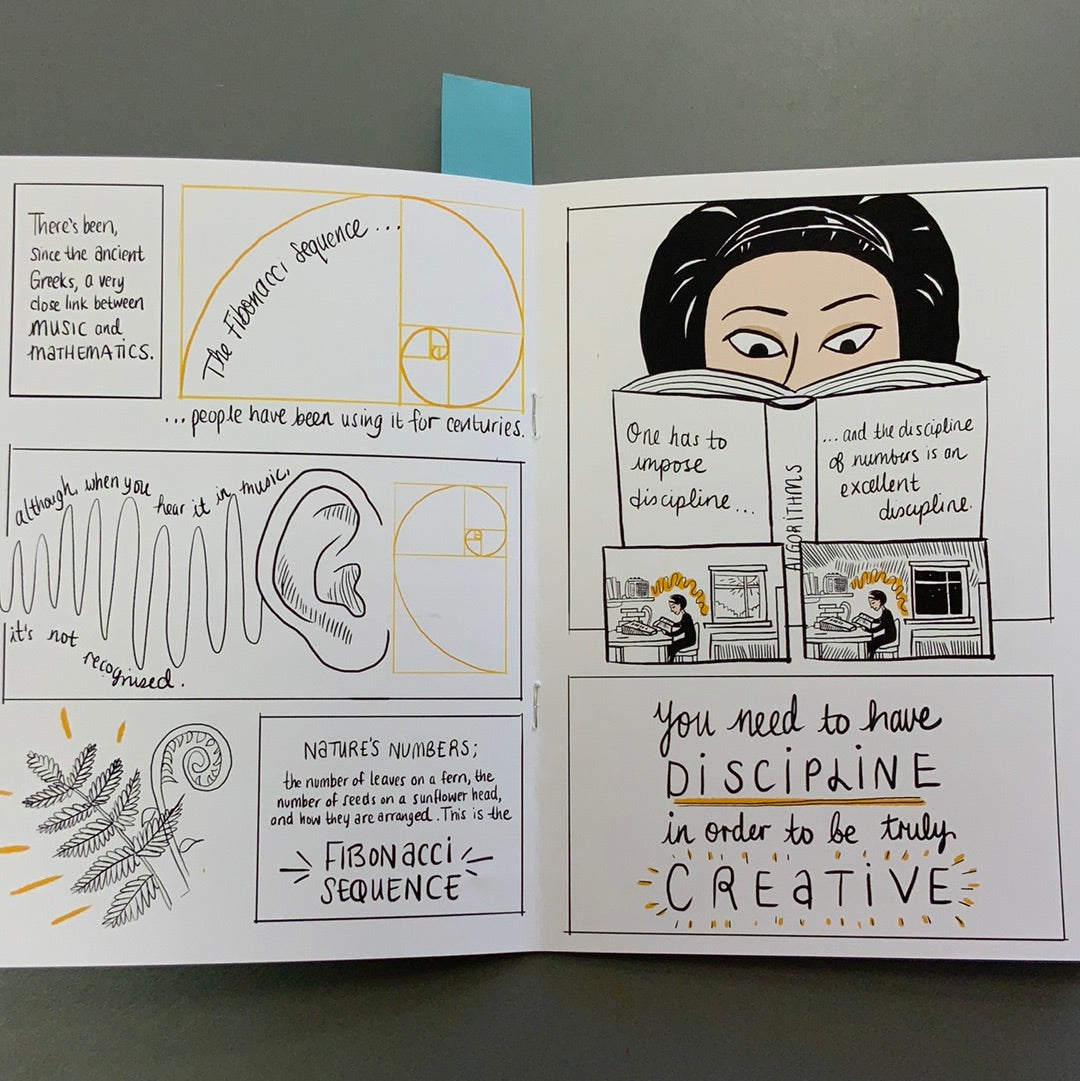 There's been,
since the ancient
Greeks, a very
close link between
MUSIC and
MATHEMATICS.
The Fibonacci Sequence...
...people have been using it for centuries.
although, when you
hear it in music,
it's not
recognised.
NATURE'S NUMBERS;
the number of leaves on a fern, the
number of seeds on a sunflower head,
and how they are arranged. This is the
FIBONACCI
SEQUENCE
One has to
impose
discipline...
ALGORITHMS
...and the discipline
of numbers is an
excellent
discipline.
You need to have
DISCIPLINE
in order to be truly
CREATIVE